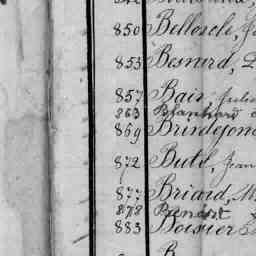 850 Bellosele, J
853 Besnard, L
857 Bair, Julie
863 Blanchard
869 Brindejon
872 Buté, Jean
877 Briard, M
878 Benart
883 Boisier